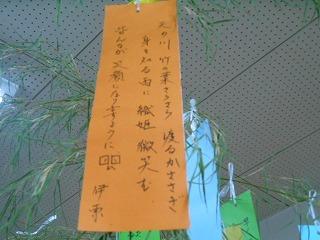 天の川 竹の葉さらさら 渡るかささぎ
身を知る雨に 織姫 微笑む
みんなが 笑顔になりますように
伊東